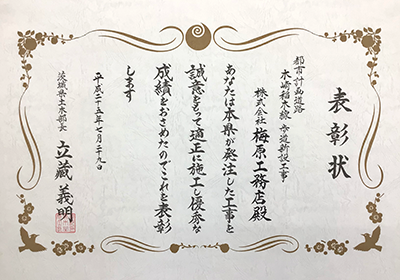 表彰状
都市計画道路
木崎稲木線 歩道新設工事
株式会社 梅原工務店殿
あなたは本県が発注した工事を
誠意をもって適正に施工し優秀な
成績をおさめたのでこれを表彰
します
平成二十五年七月二十九日
茨城県土木部長 立藏義明